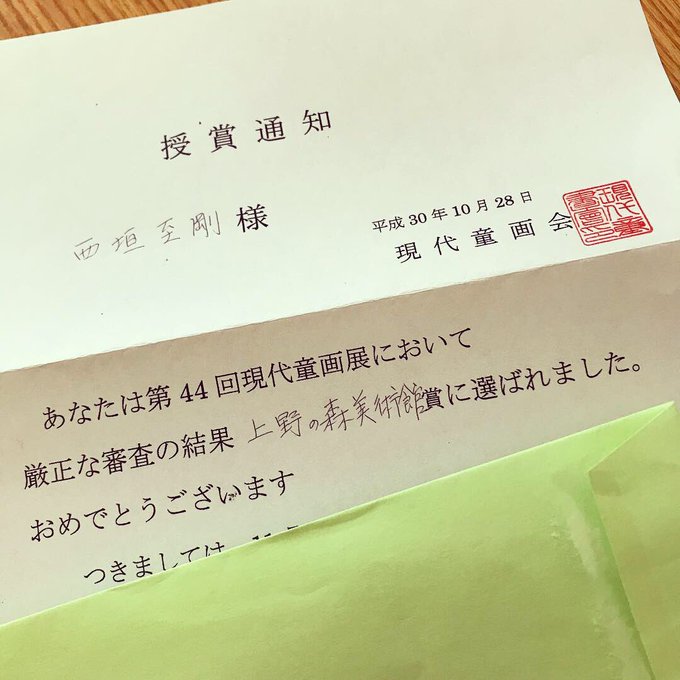 授賞通知
西垣至剛様
平成30年10月28日
現代童画会
あなたは第44回現代童画展において
厳正な審査の結果 上野の森美術館賞に選ばれました。
おめでとうございます
つきましては、